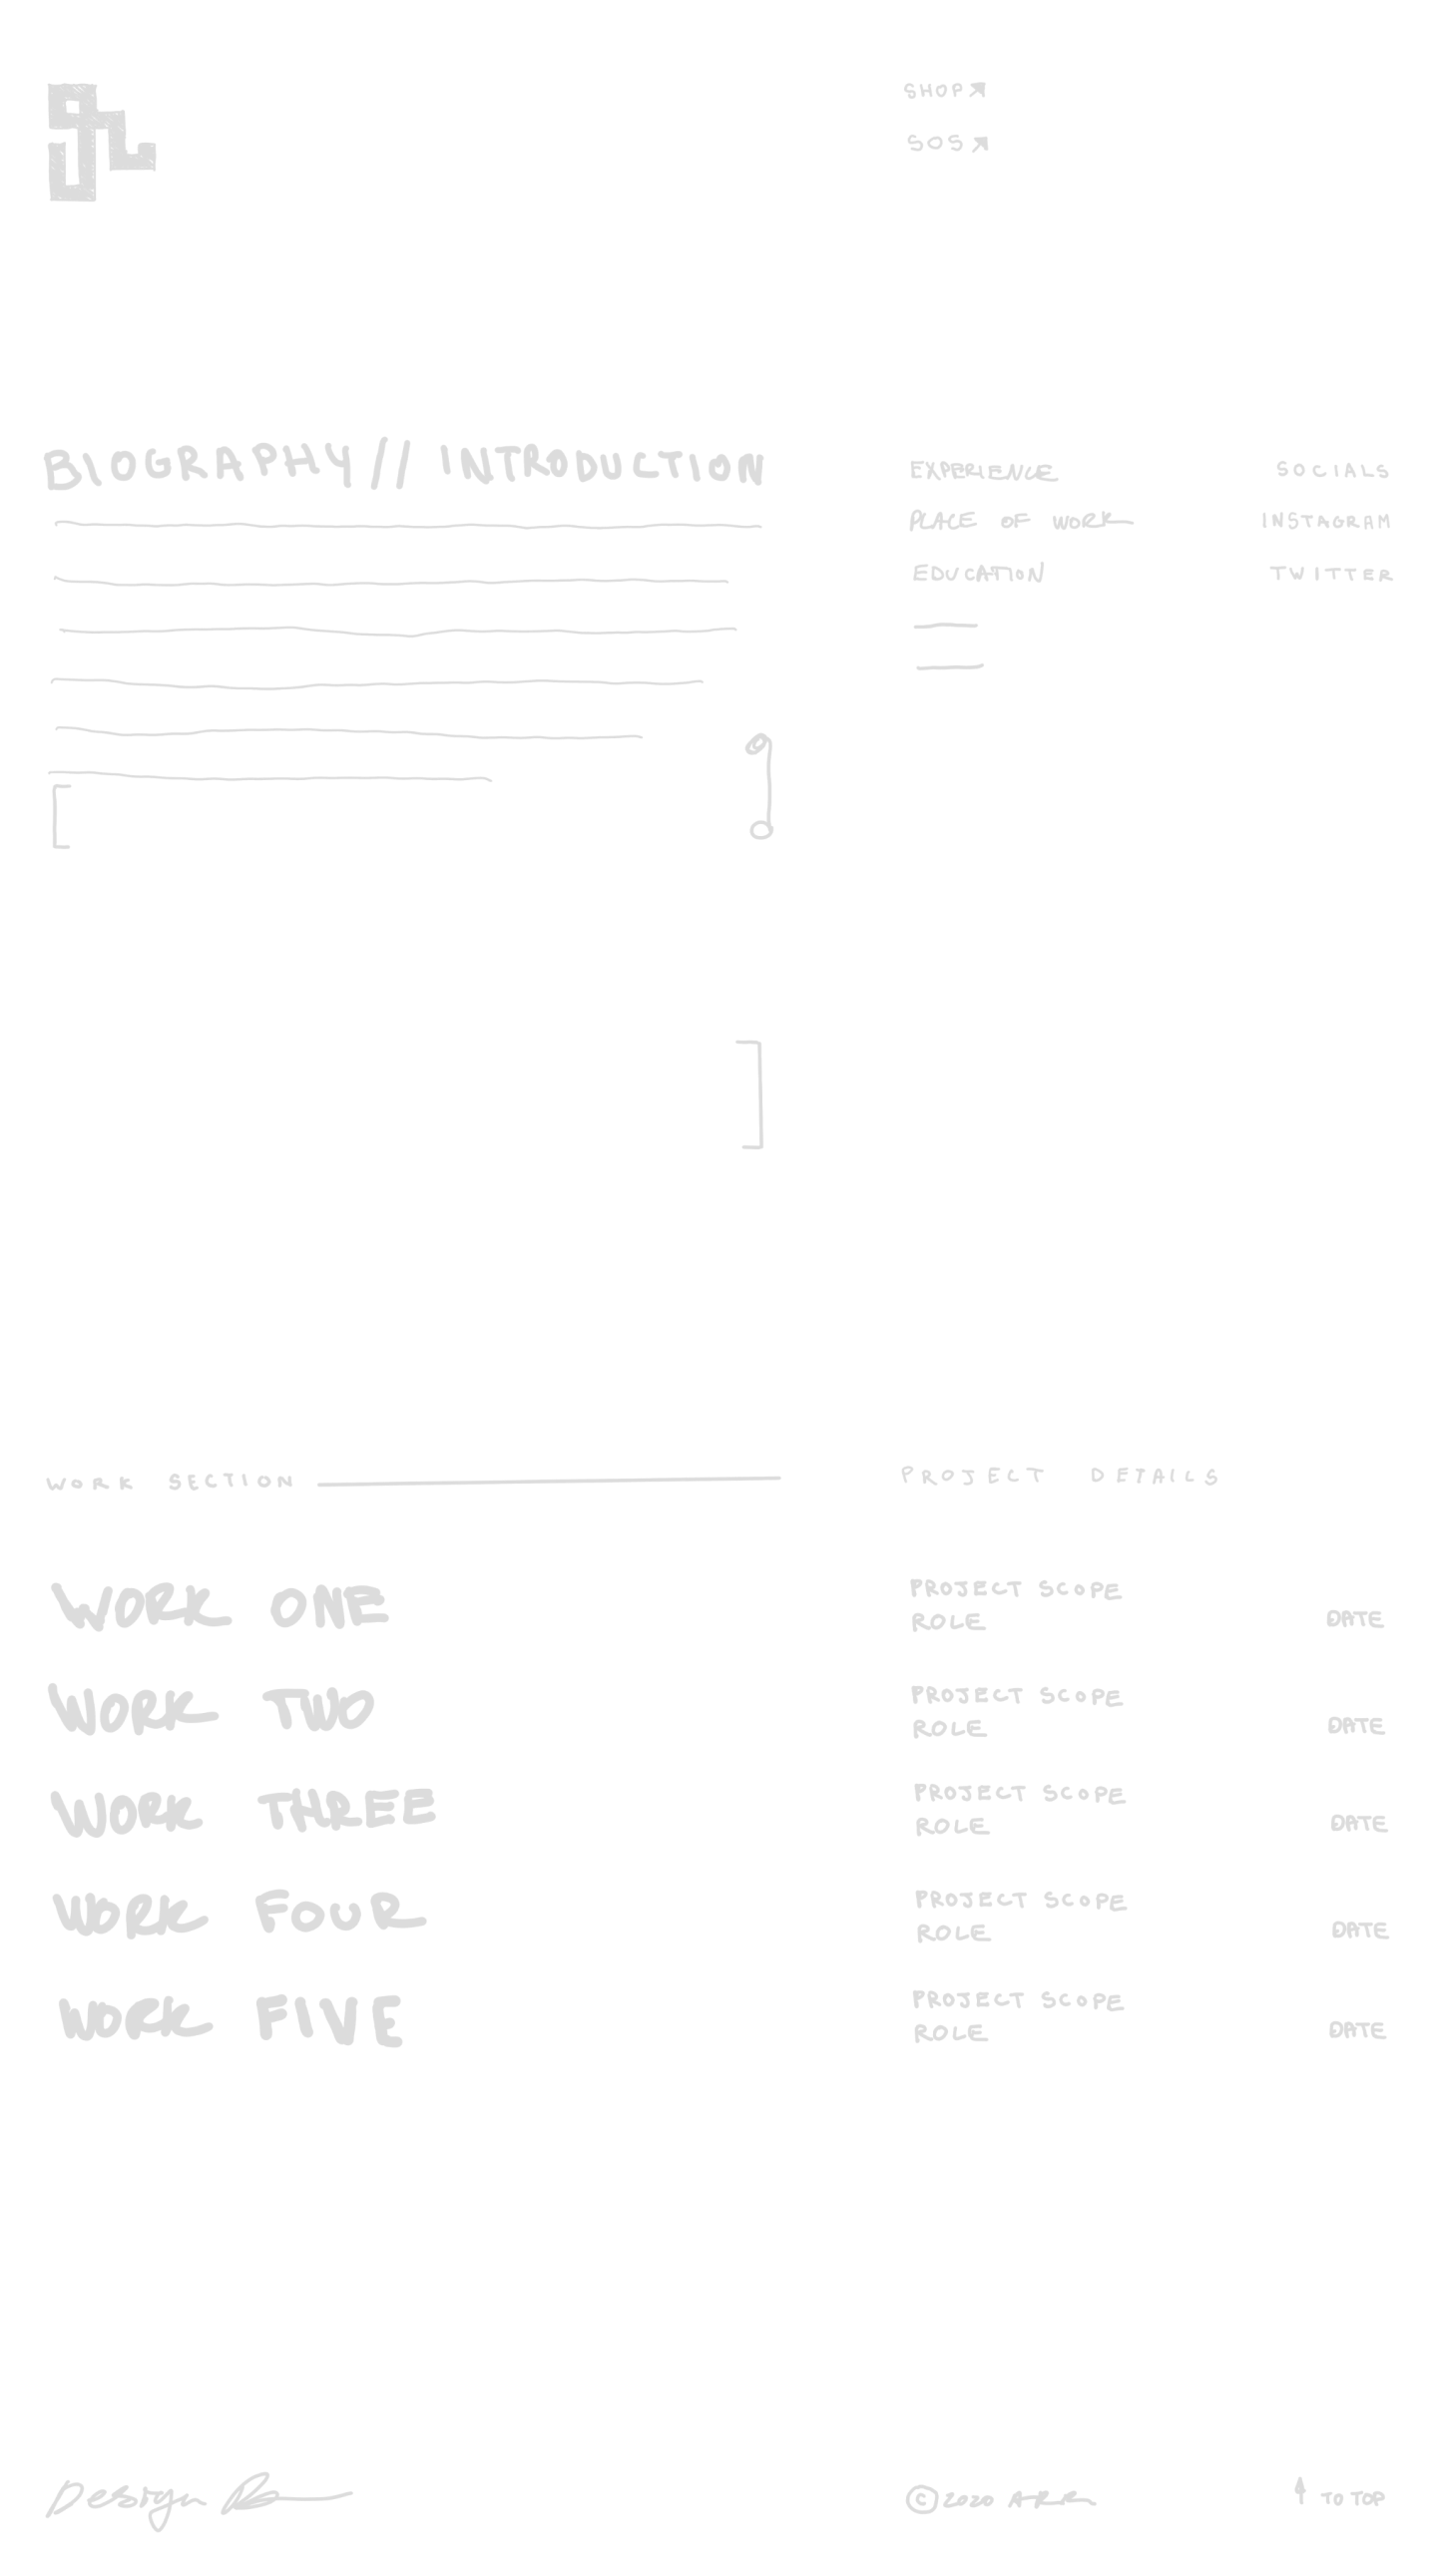 SHOP
SOS
BIOGRAPHY // INTRODUCTION
EXPERIENCE
PLACE OF WORK
EDUCATION
SOCIALS
INSTAGRAM
TWITTER
WORK SECTION
PROJECT DETAILS
WORK ONE
PROJECT SCOPE
ROLE DATE
WORK TWO
PROJECT SCOPE
ROLE DATE
WORK THREE
PROJECT SCOPE
ROLE DATE
WORK FOUR
PROJECT SCOPE
ROLE DATE
WORK FIVE
PROJECT SCOPE
ROLE DATE
Design
© 2020
TO TOP